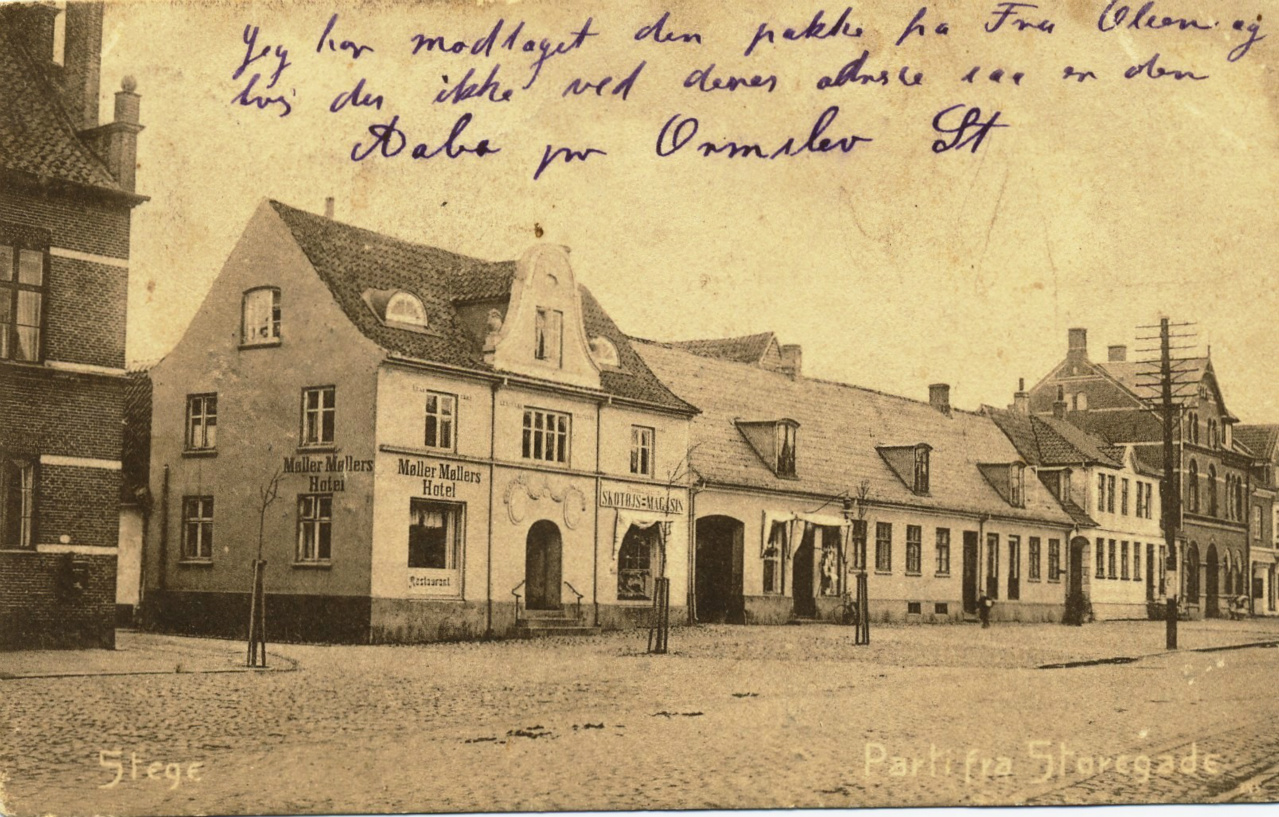 Jeg har modtaget den pakke fra Fru Olsen og
hvis der ikke ved denes adresse saa er den
Aabo pr Ormslev St
Møller Møllers
Hotel
Møller Møllers
Hotel
Restaurant
SKOTØJS=MAGASIN
Stege
Parti fra Storegade